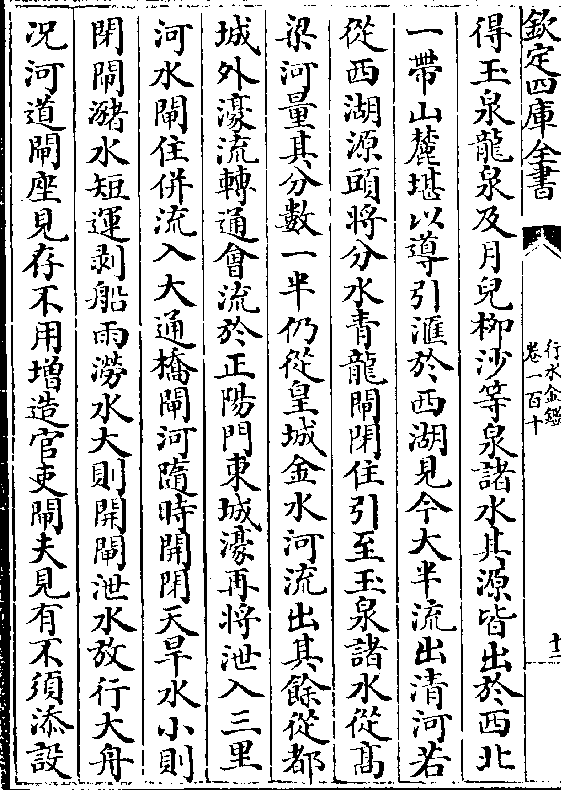 欽定四庫全書
行水金鑑
卷一百十
十二
得玉泉龍泉及月兒栁沙等泉諸水其源皆出於西北
一帶山麓堪以導引滙於西湖見今大半流出清河若
從西湖源頭將分水青龍閘閉住引至玉泉諸水從髙
梁河量其分數一半仍從皇城金水河流出其餘從都
城外濠流轉通會流於正陽門東城濠再將泄入三里
河水閘住併流入大通橋閘河隨時開閉天旱水小則
閉閘瀦水短運剥船雨澇水大則開閘泄水放行大舟
况河道閘座見存不用增造官吏閘夫見有不須添設